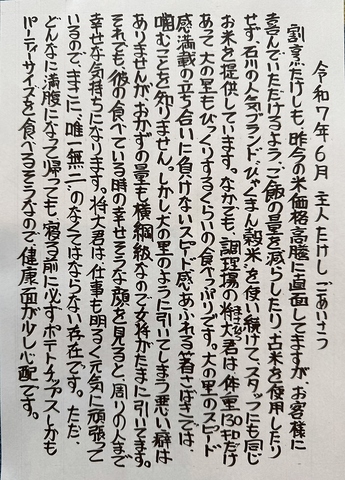 令和7年6月 主人たけし ごあいさつ
割烹たけしも、昨今の米価格高騰に直面してますが、お客様に
喜んでいただけるよう、ご飯の量を減らしたり、古米を使用したり
せず、石川の人気ブランド“ひゃくまん穀”米を使い続けて、スタッフにも同じ
お米を提供しています。なかでも、調理場の将大君は体重130㌔だけ
あって大の里もびっくりするくらいの食べっぷりです。大の里のスピード
感満載の立ち合いに負けないスピード感あふれる箸さばきでは、
噛むことを知りません。しかし大の里のように引いてしまう悪い癖は
ありませんが、おかずの量も横綱級なので女将がたまに引いてます。
それでも、彼の食べている時の幸せそうな顔を見ると、周りの人まで
幸せな気持ちになります。将大君は仕事も明るく元気に頑張って
いるので、まさに、唯一無二のなくてはならない存在です。ただ、
どんなに満腹になって帰っても、寝る前に必ずポテトチップスしかも
パーティーサイズを食べるそうなので、健康面が少し心配です。